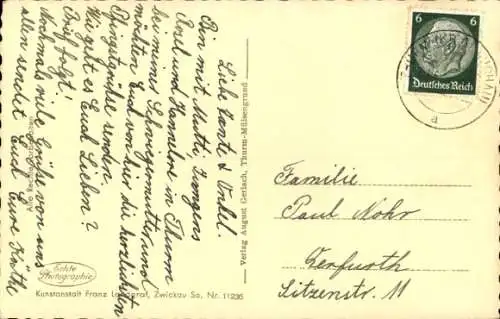 Liebe Tante & Onkel.
Bin mit Mutti, Irmgens
Axel und Hannelore in Thurm
bei meiner Schwiegermutter, und
möchten Euch von hier die herzlichsten
Pfingstgrüße senden.
Wie geht es Euch Lieben?
Brief folgt!
Nochmals viele Grüße von uns
allen sendet Euch Eure Käthe
Echte
Photographie
Kunstanstalt Franz Landgraf, Zwickau Sa. Nr. 11236
Verlag August Gerlach, Thurm-Mülsengrund
6 6
Deutsches Reich
a
Familie
Paul Nohr
Erfurth
Sitzenstr. 11